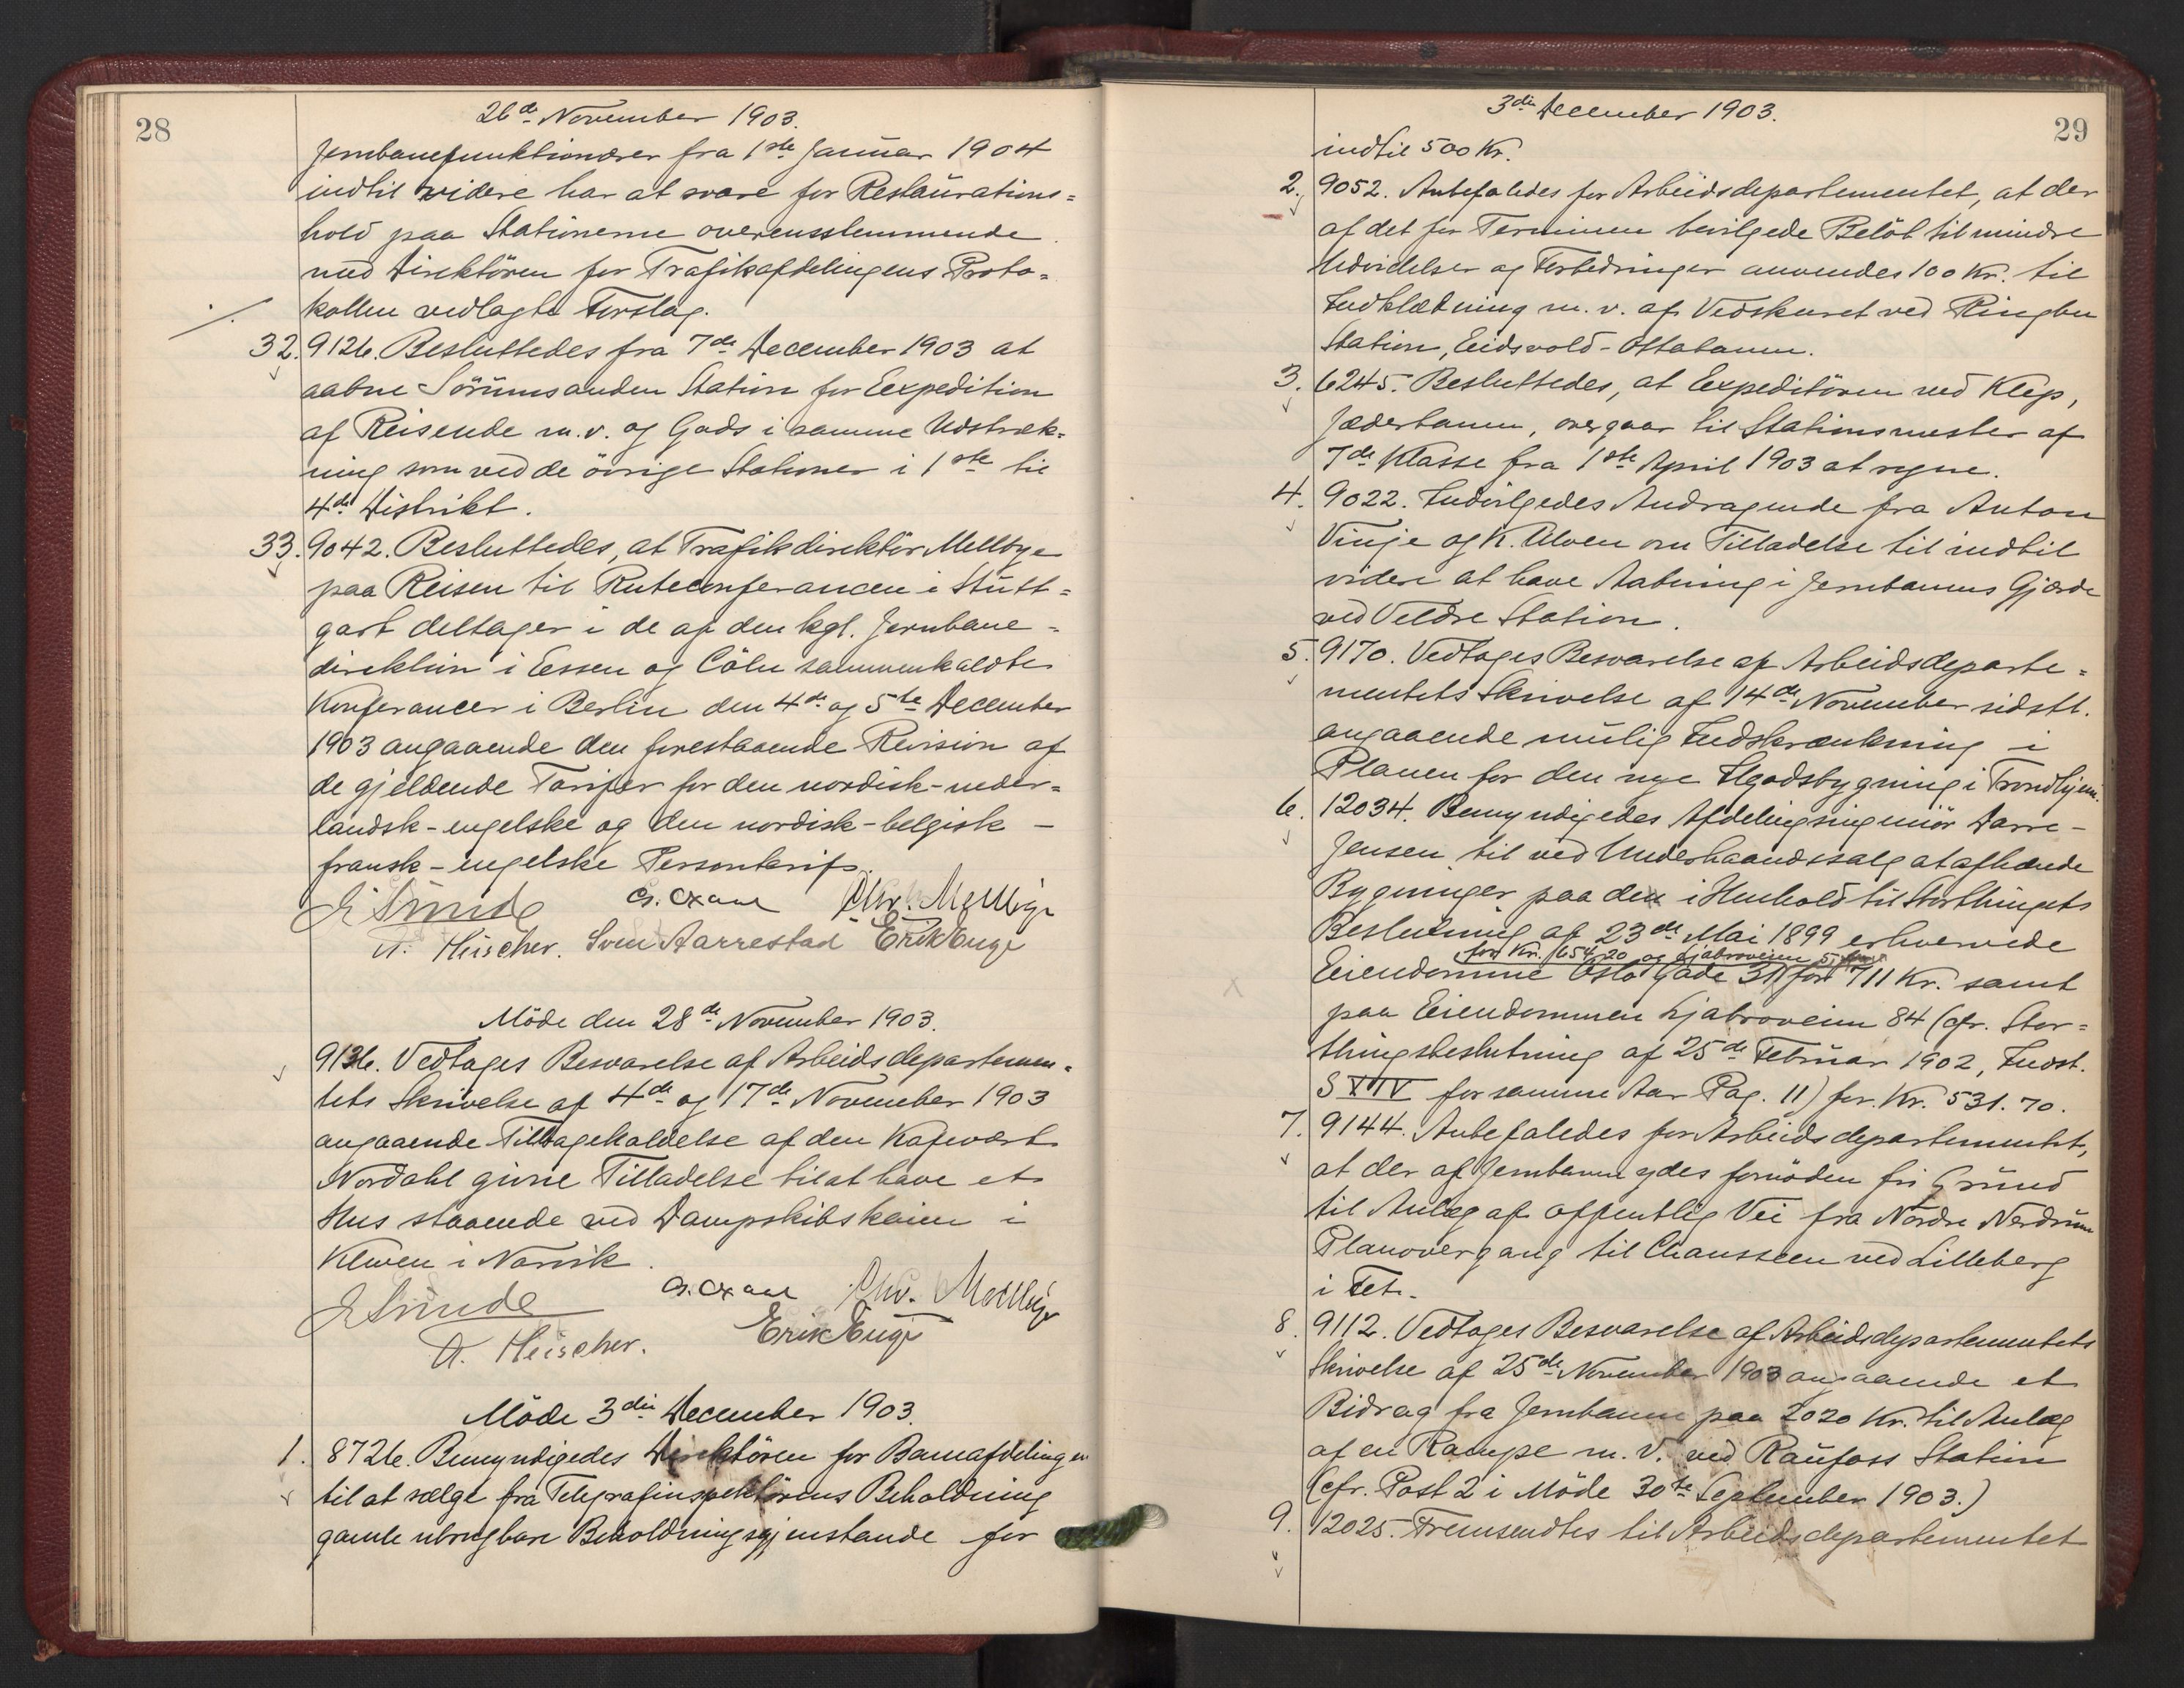 28
26de November 1903.
Jernbanefunktionærer fra 1ste Januar 1904
indtil videre har at svare for Restaurations=
hold paa Stationerne overensstemmende
med Direktören for Trafikafdelingens Proto=
kollen vedlagte Forslag.
32. 9126. Besluttedes fra 7de December 1903 at
aabne Sörumsanden Station for Expedition
af Reisende m.v. og Gods i samme Udstræk=
ning som ved de övrige Stationer i 1ste til
4de Distrikt.
33. 9042. Besluttedes, at Trafikdirektör Mellbye
paa Reisen til Ruteconferancen i Stutt=
gart deltager i de af den kgl. Jernbane=
direktion i Essen og Cöln sammenkaldte
Konferancer i Berlin den 4de og 5te December
1903 angaaende den forestaaende Revision af
de gjeldende Tarifer for den nordisk-neder=
landsk-engelske og den nordisk-belgisk-
fransk-engelske Persontarif.
E Sunde G. Oxaal Chr. Mellbye
A. Hüscher. Sven Aarrestad Erik Enge
Möde den 28de November 1903.
9136. Vedtages Besvarelse af Arbeidsdepartemen=
tets Skrivelse af 4de og 17de November 1903
angaaende Tilbagekaldelse af den Kafevært
Nordahl givne Tilladelse til at have et
Hus staaende ved Dampskibskaien i
Kleven i Narvik.
E Sunde G. Oxaal Chr. Mellbye
A. Hüscher. Erik Enge
Möde 3die December 1903.
1. 8726. Bemyndigedes Direktören for Baneafdelingen
til at sælge fra Telegrafinspektörens Beholdning
gamle ubrugbare Beholdningsgjenstande for
29
3die December 1903.
indtil 500 Kr.
2. 9052. Anbefaledes for Arbeidsdepartementet, at der
af det for Terminen bevilgede Belöb til mindre
Udvidelser og Forbedringer anvendes 100 Kr. til
Indklædning m.v. af Vedskuret ved Ringebu
Station, Eidsvold-Ottabanen.
3. 6245. Besluttedes, at Expeditören ved Klep,
Jæderbanen, overgaar til Stationsmester af
7de Klasse fra 1ste April 1903 at regne.
4. 9022. Indvilgedes Andragende fra Anton
Vinje og K. Ulven om Tilladelse til indtil
videre at have Aabning i Jernbanens Gjærde
ved Veldre Station.
5. 9170. Vedtages Besvarelse af Arbeidsdeparte=
mentets Skrivelse af 14de November sidstl.
angaaende mulig Indskrænkning i
Planen for den nye Ilgodsbygning i Trondhjem.
6. 12034. Bemyndigedes Afdelingsingeniör Darre-
Jensen til ved Underhaandssalg at afhænde
Bygninger paa de i Henhold til Storthingets
Beslutning af 23de Mai 1899 erhvervede
for Kr. 654.20 og Ljabroveien 5
Eiendomme Oslo Gade 31 for 711 Kr. samt
paa Eiendommen Ljabroveien 84 (cfr. Stor=
thingsbeslutning af 25de Februar 1902, Indst.
S XIV for samme Aar Pag. 11) for Kr. 531.70.
7. 9144. Anbefaledes for Arbeidsdepartementet,
at der af Jernbanen ydes fornöden fri Grund
til Anlæg af offentlig Vei fra Nordre Nerdrum
Planovergang til Chausseen ved Lilleberg
i Fet.
8. 9112. Vedtages Besvarelse af Arbeidsdepartementets
Skrivelse af 25de November 1903 angaaende et
Bidrag fra Jernbanen paa 2020 Kr. til Anlæg
af en Rampe m.v. ved Raufoss Station
(cfr. Post 2 i Möde 30te September 1903.)
9. 12025. Fremsendtes til Arbeidsdepartementet